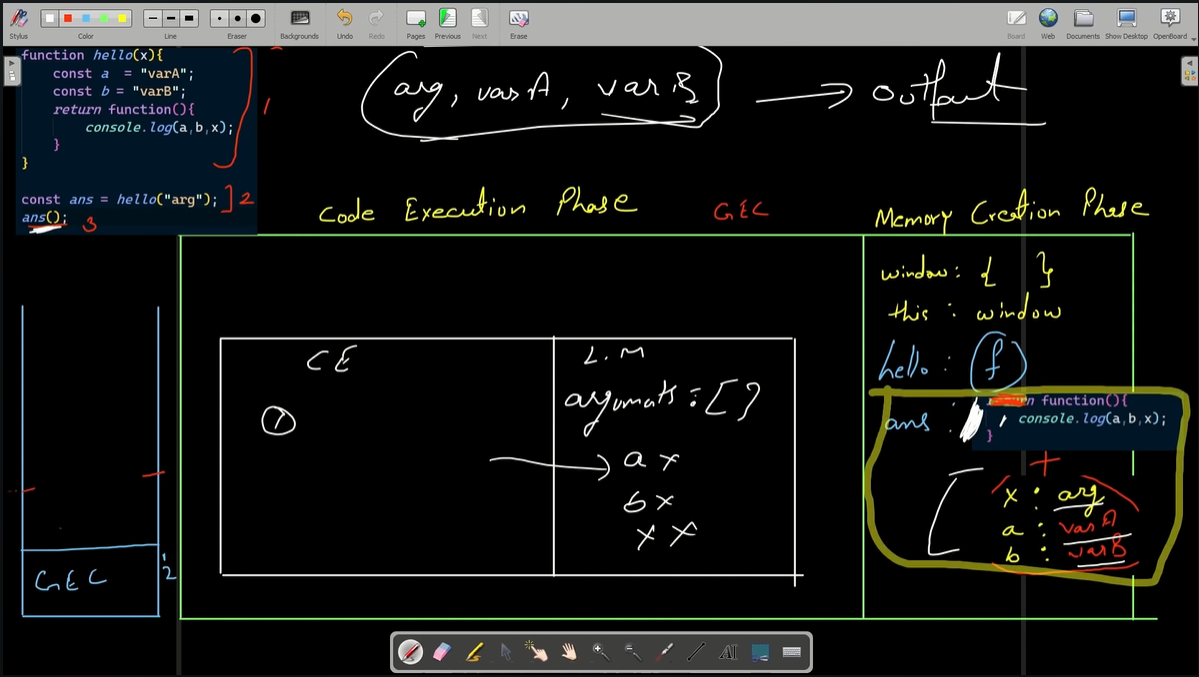 Stylus Color Line Eraser Backgrounds Undo Redo Pages Previous Next Erase Board Web Documents Show Desktop OpenBoard
function hello(x){
const a = "varA";
const b = "varB";
return function(){
console.log(a,b,x);
}
}
1
const ans = hello("arg"); 2
ans(); 3
(arg, varA, varB) → output
Code Execution Phase GEC Memory Creation Phase
window: { }
this : window
hello : f
ans :
function(){
console.log(a,b,x);
}
+
x : arg
a : varA
b : varB
CE L.M
arguments : [ ]
1
→ a x
b x
x x
GEC
1
2
AI